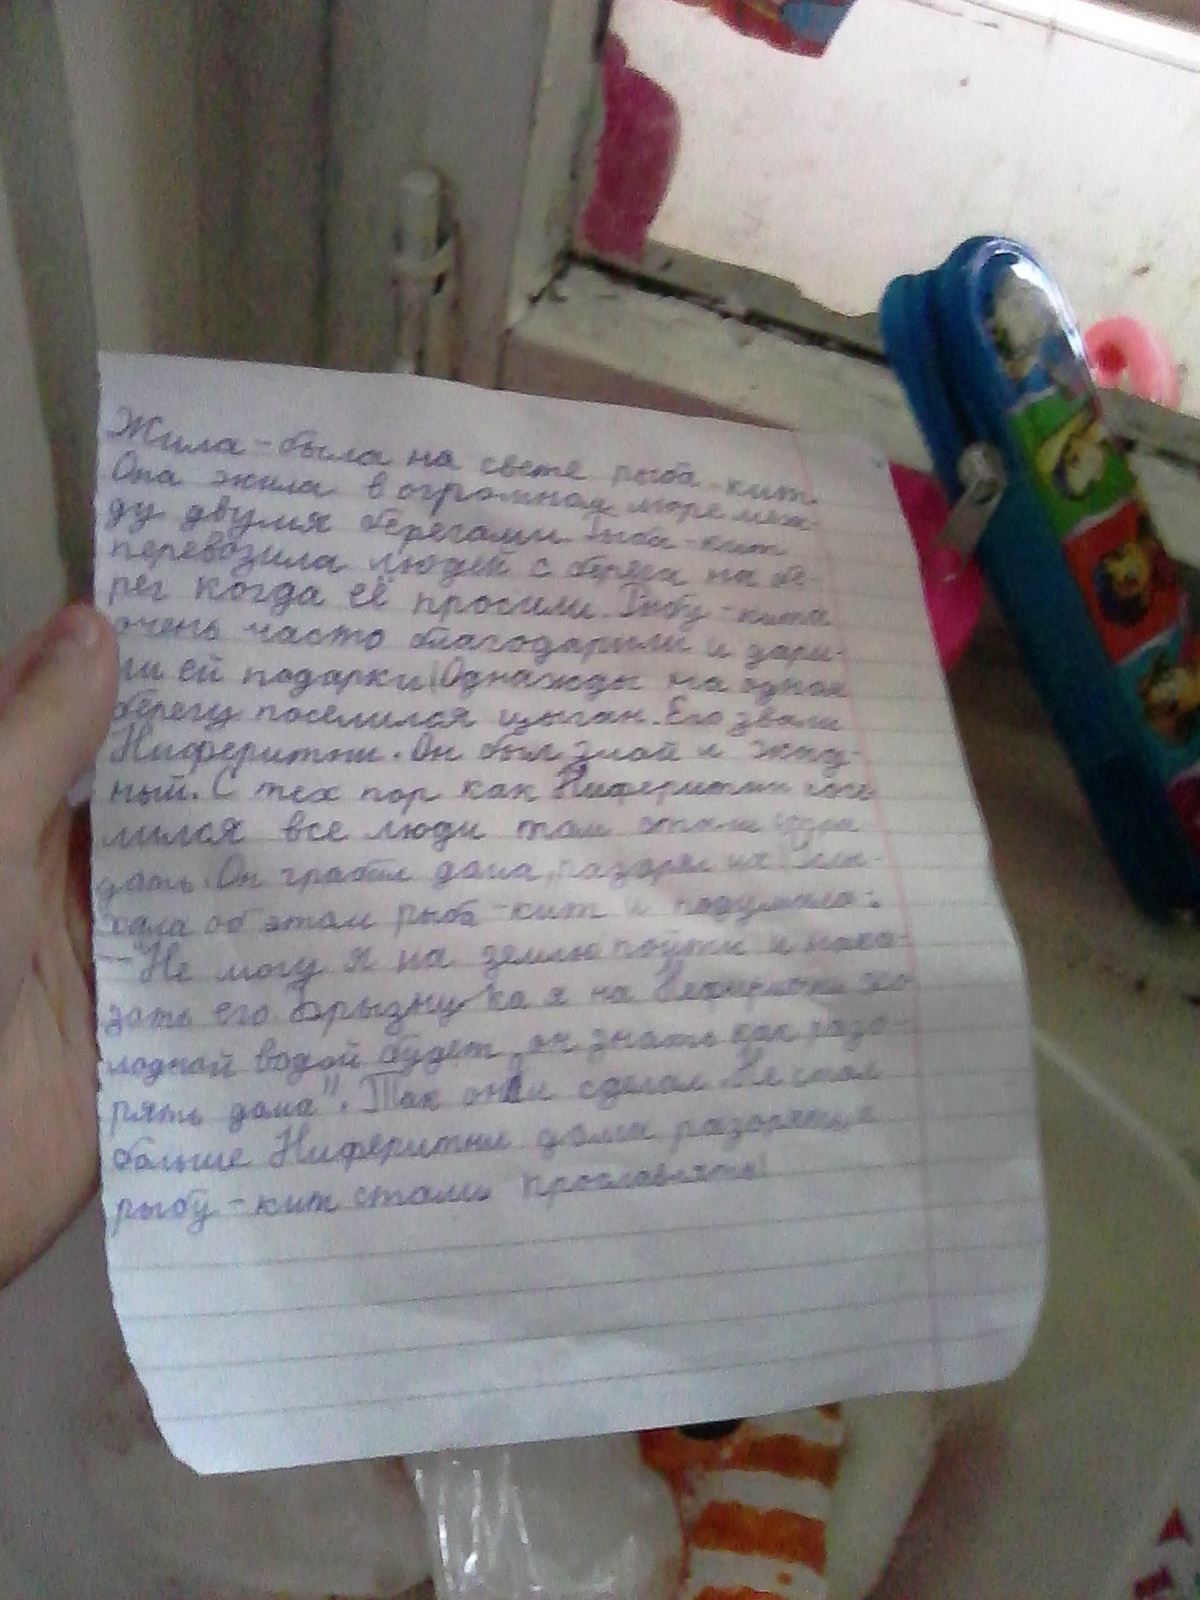 Жила-была на свете рыба-кит.
Она жила в огромном море меж-
ду двумя берегами. Рыба-кит
перевозила людей с берега на бе-
рег когда её просили. Рыбу-кита
очень часто благодарили и дари-
ли ей подарки! Однажды на одном
берегу поселился цыган. Его звали
Ниферитни. Он был злой и жад-
ный. С тех пор как Ниферитни посе
лился все люди там стали
дать. Он грабил дома, разорял их. Услы-
хала об этом рыба-кит и подумала:
-"Не могу я на землю пойти и нака-
зать его. Брызну ка я на Ниферитни хо
лодной водой будет он знать как разо-
рять дома". Так она и сделал. Не стал
больше Ниферитни дома разорять и
рыбу-кит стали прославлять!